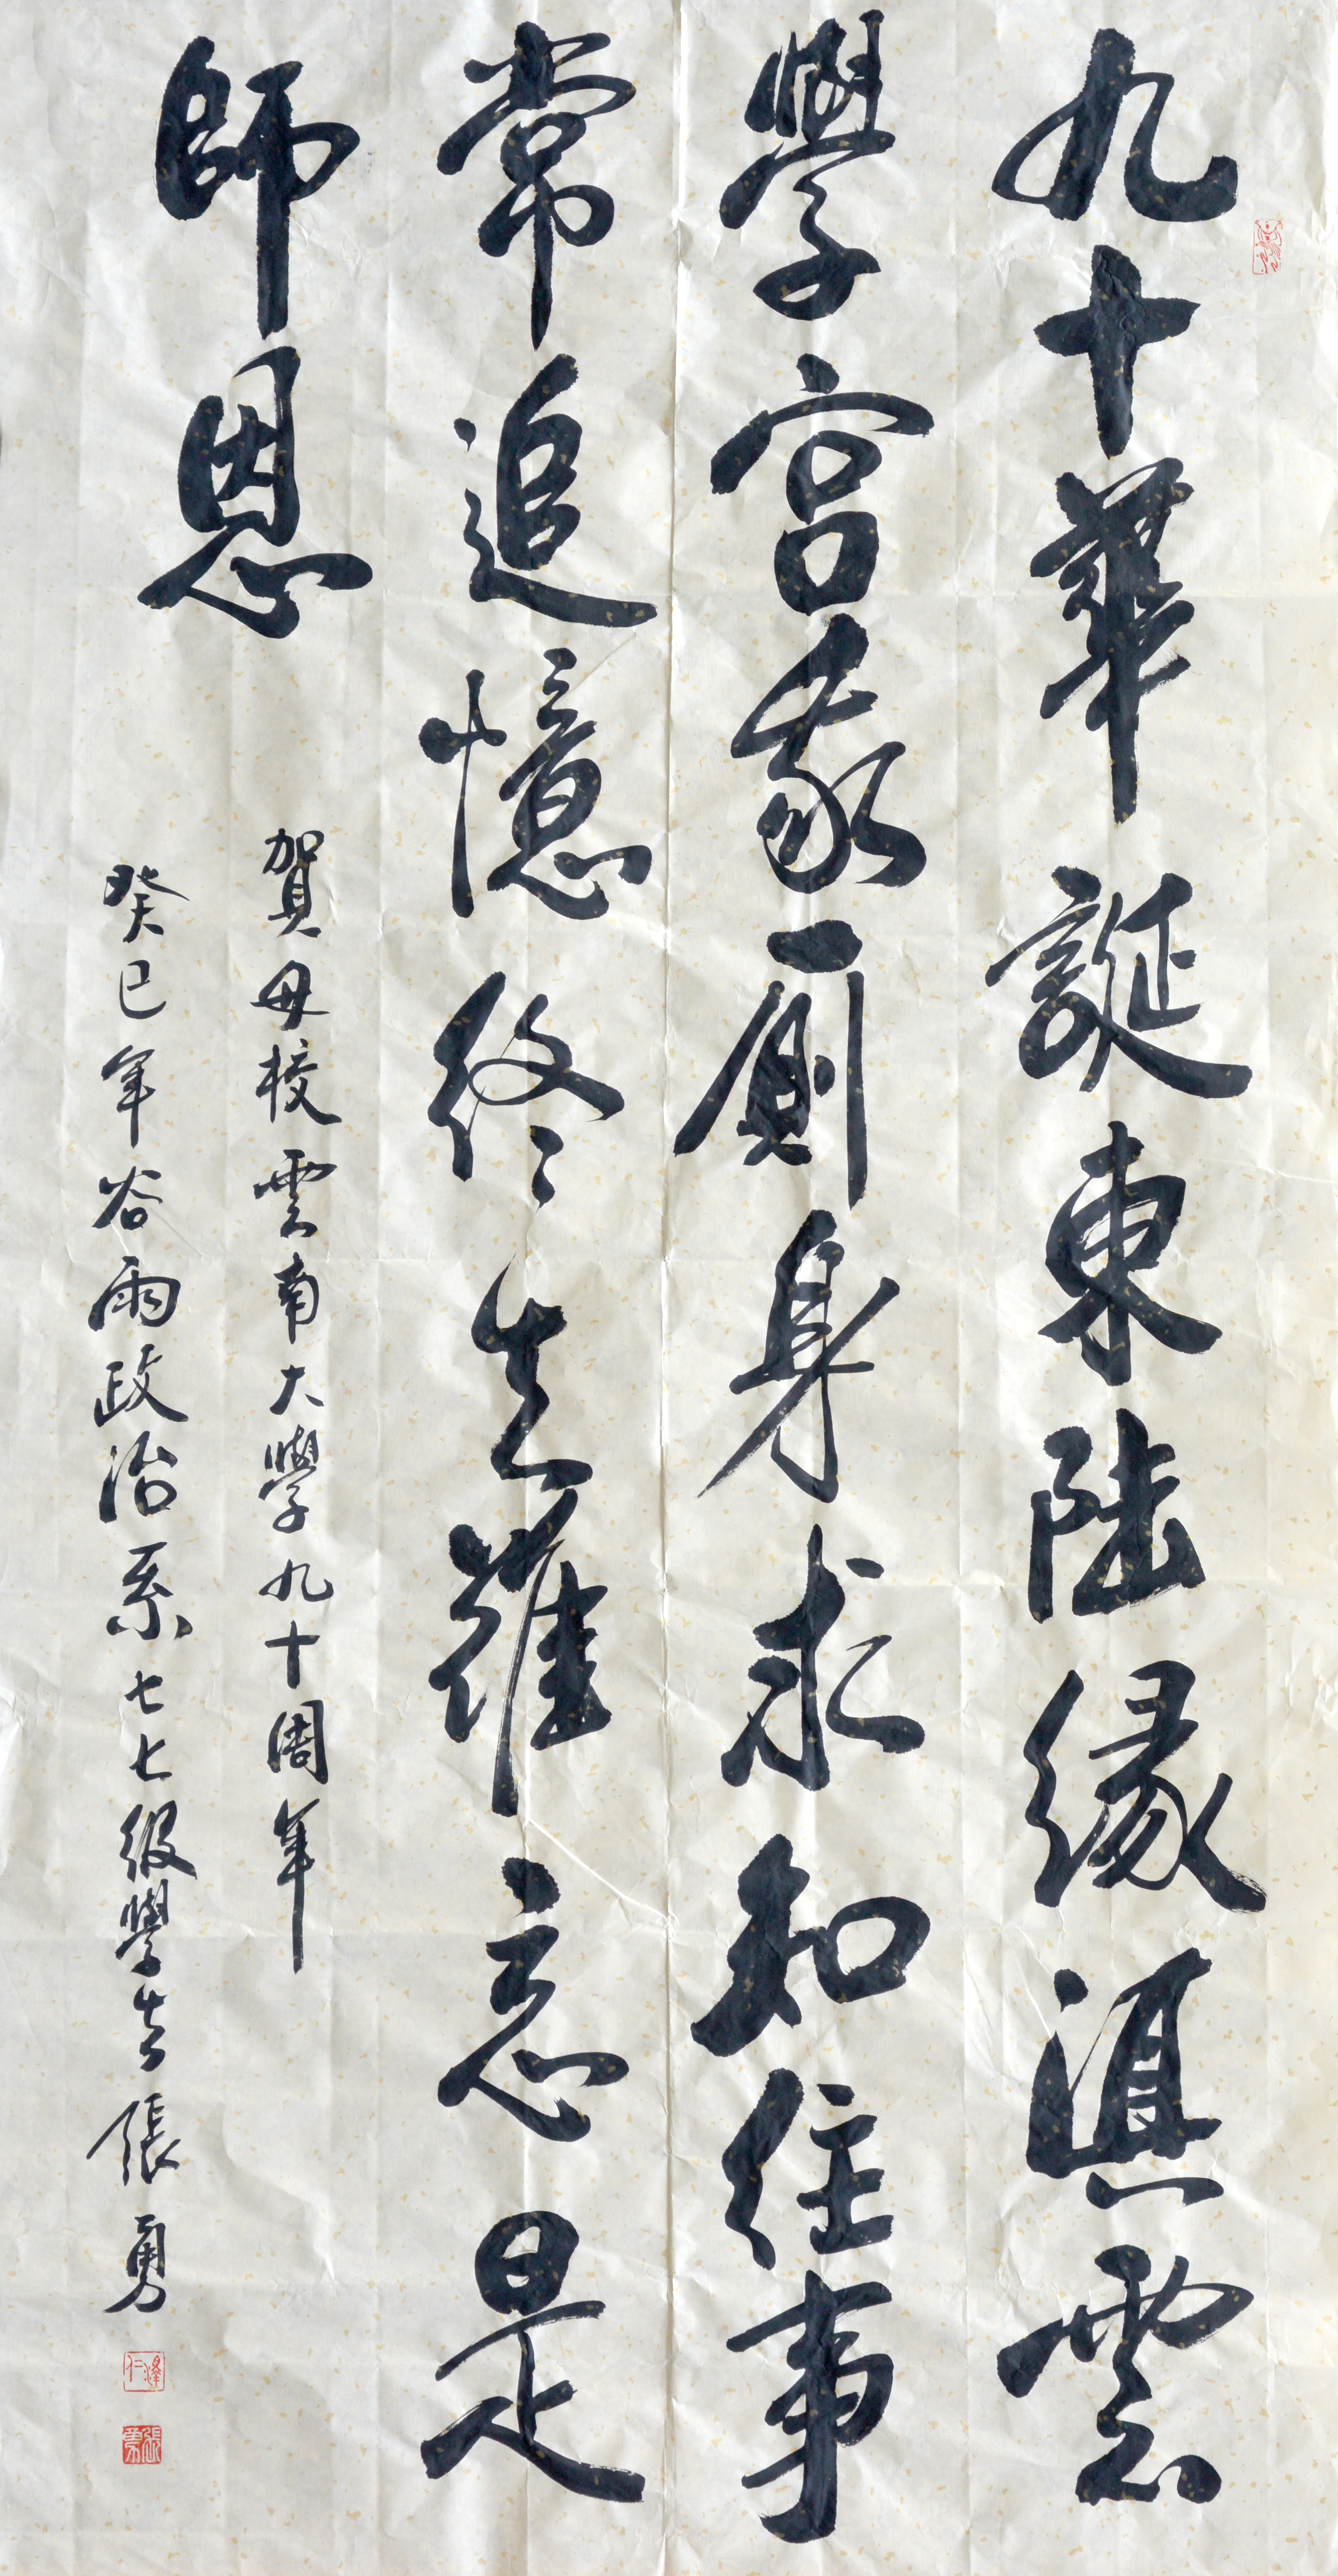 九十華誕東陸緣滇雲
學宮家廁身求知往事
常追憶終生難忘是
師恩
賀母校雲南大學九十周年
癸巳年谷雨政治系七七級學生張勇